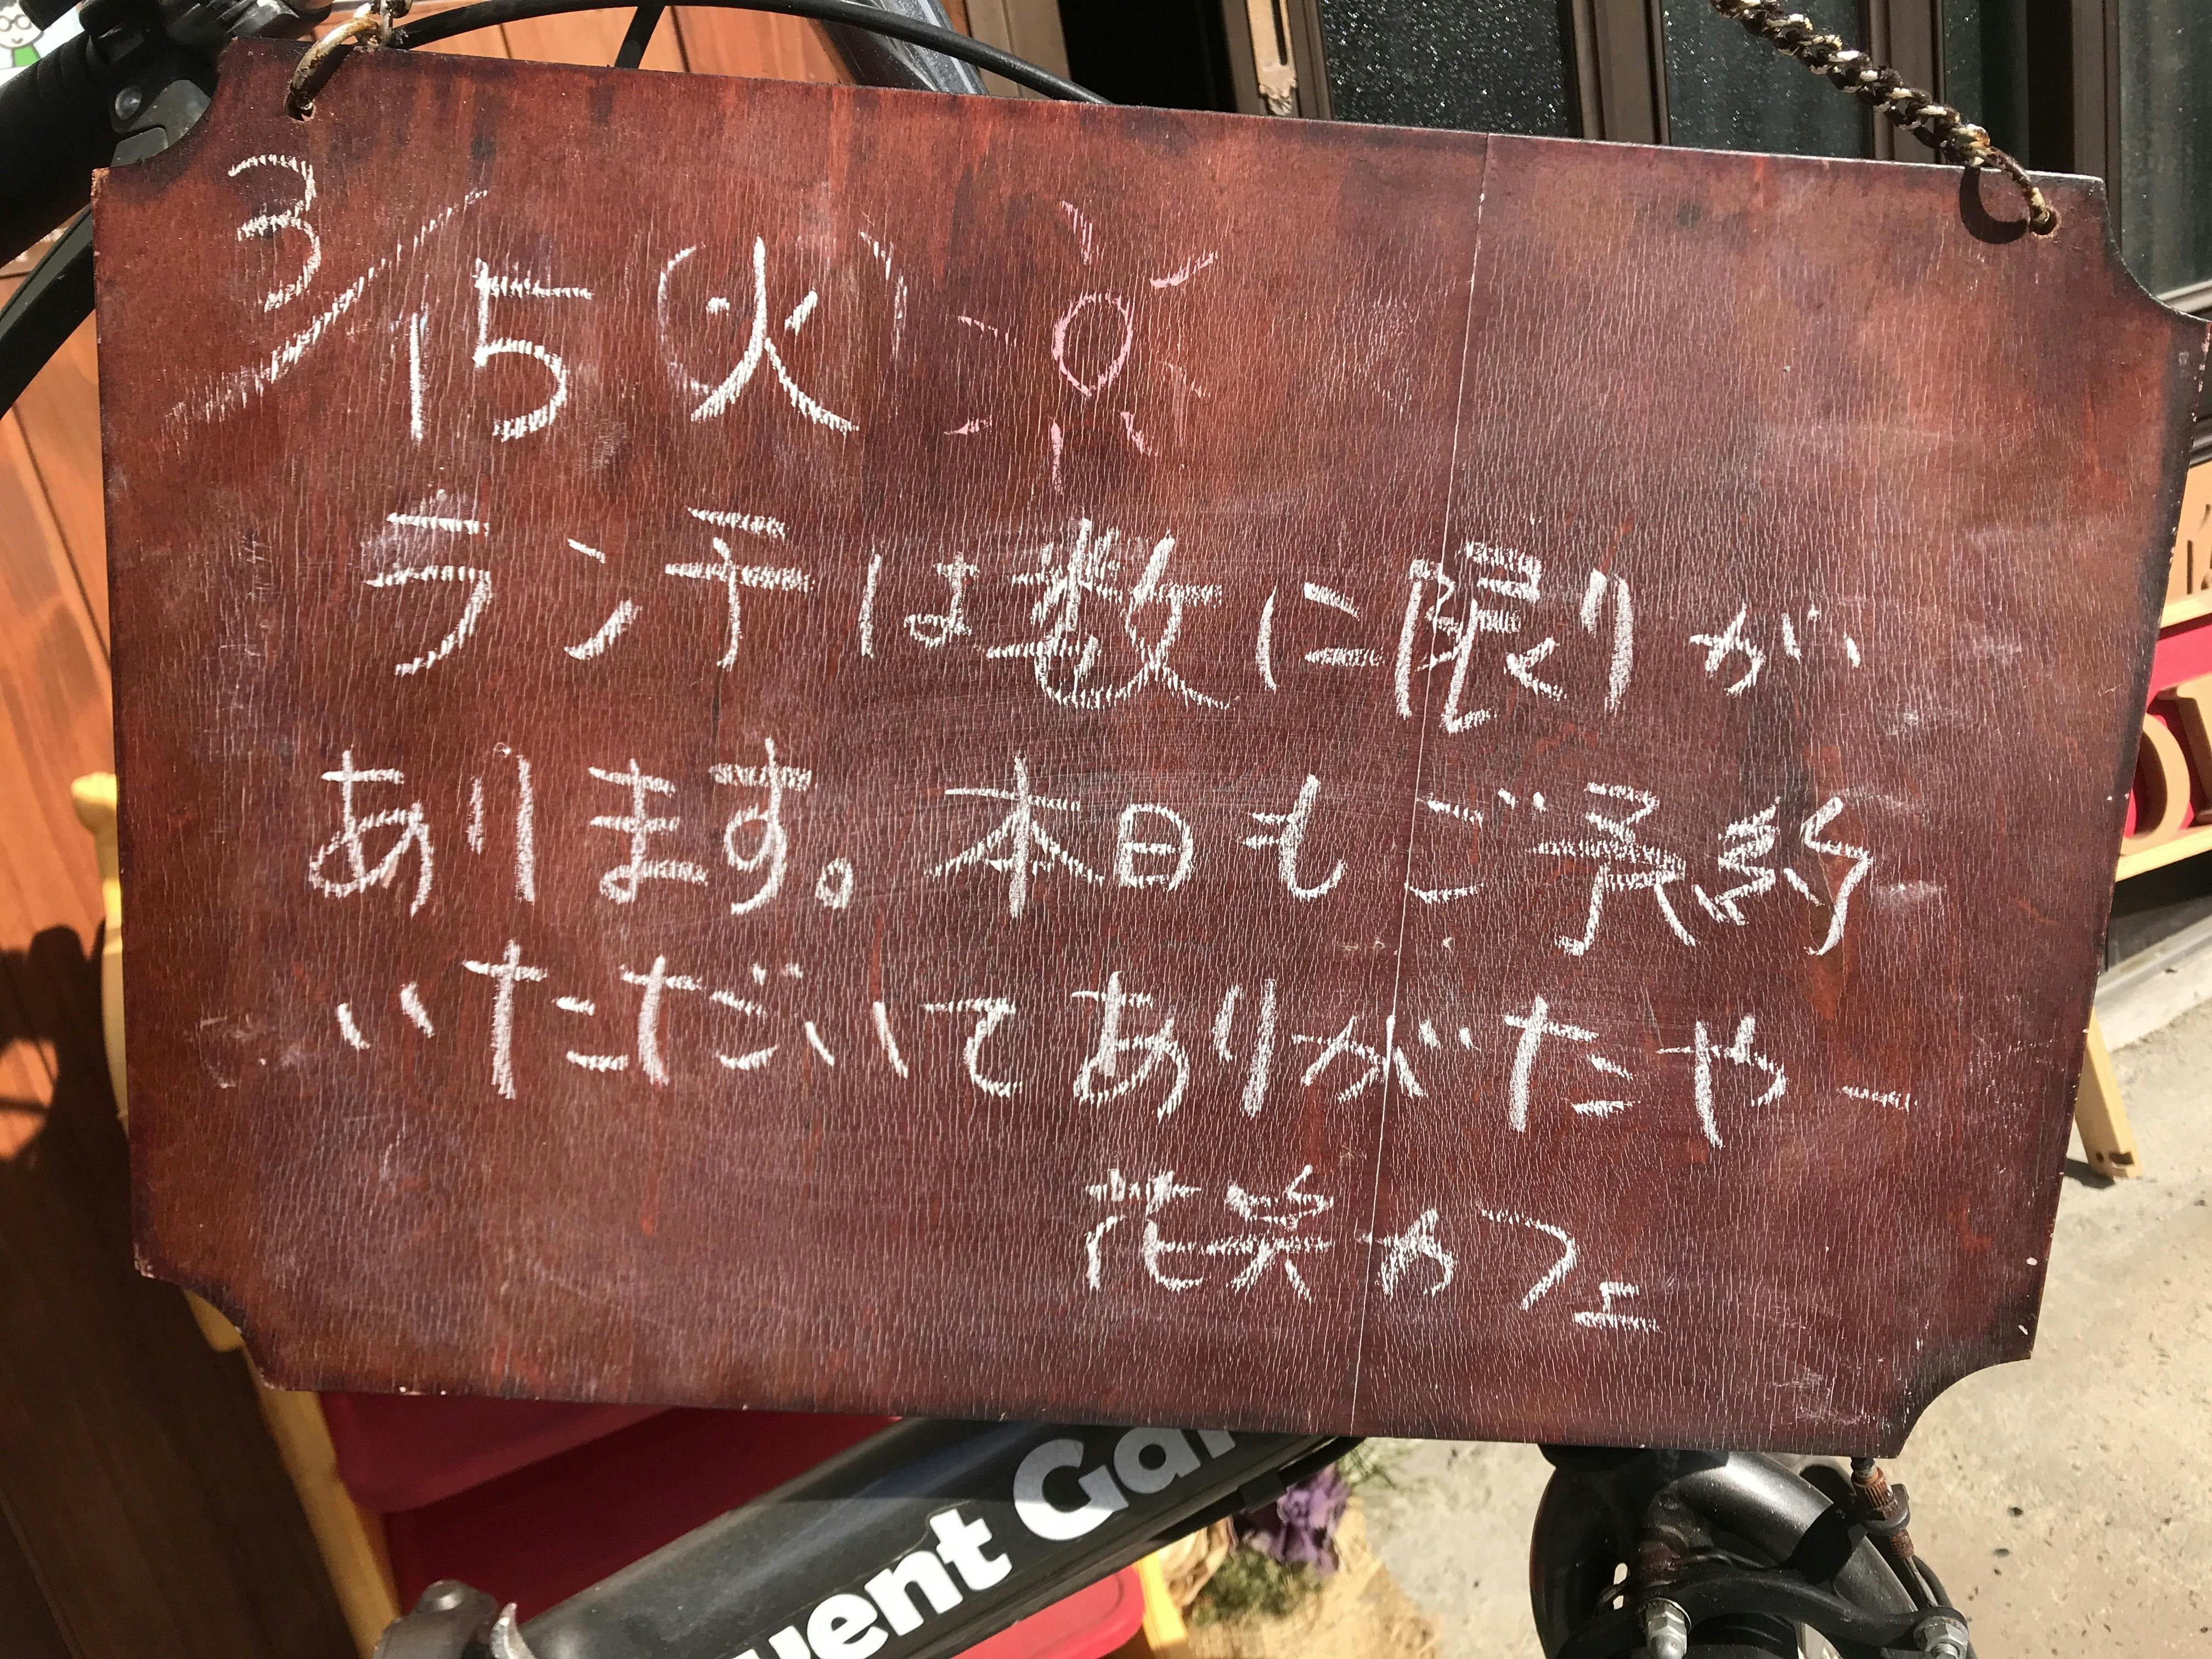 3/15(火)
ランチは数に限りが
あります。本日もご予約
いただいてありがたやー
花笑カフェ
uent Gar